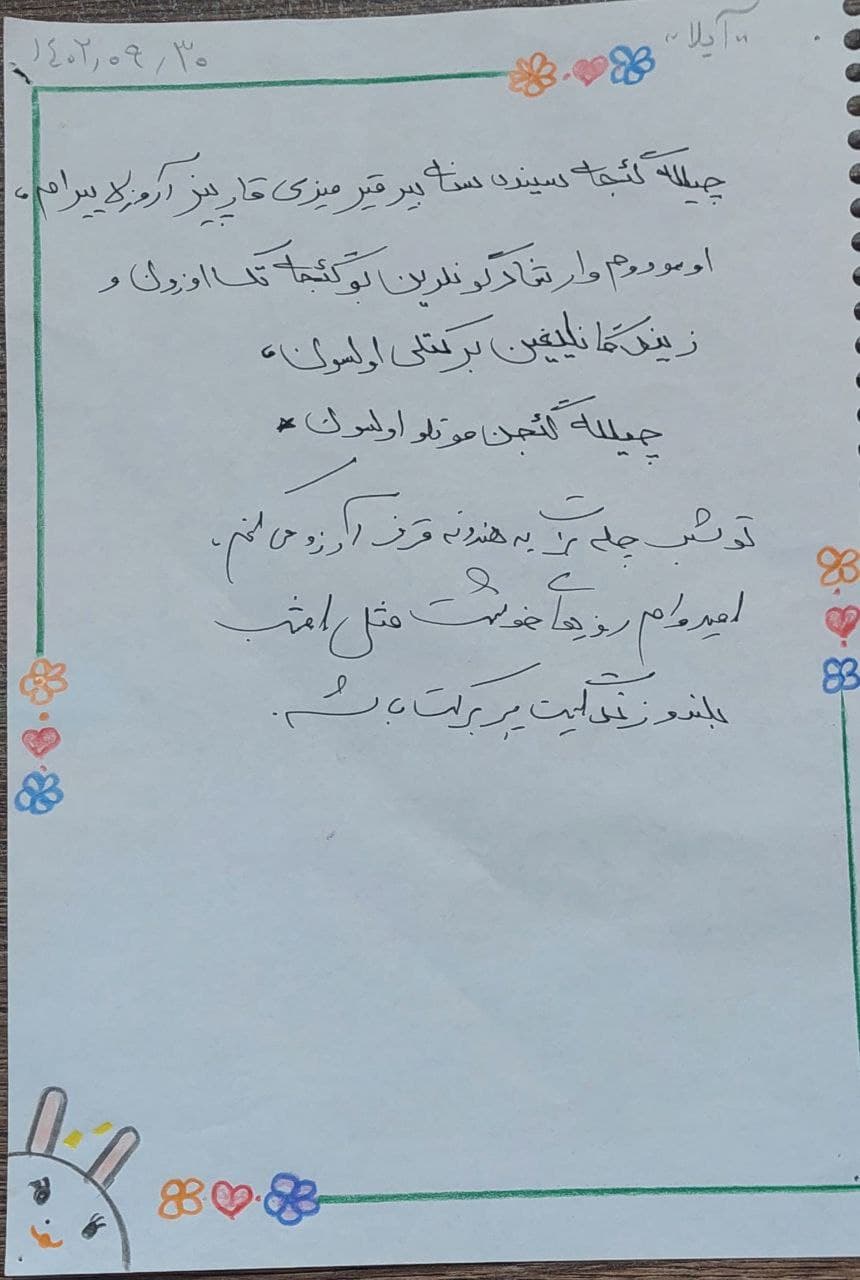 "آیلا"
۱۴۰۲،۰۹،۳۰
چیلله گئجه سینده سنه بیر قیرمیزی قارپیز آروزلا ییرام،
اومودوم وار شاد گونلرین بو گئجه تک اوزون و
زیندگانلیغین برکتلی اولسون،
چیلله گئجن موتلو اولسون *
تو شب چله برات یه هندونه قرمز آرزو می‌کنم.
امیدوارم روزهای خوشت مثل امشب
بلند و زندگیت پر برکت باشه.